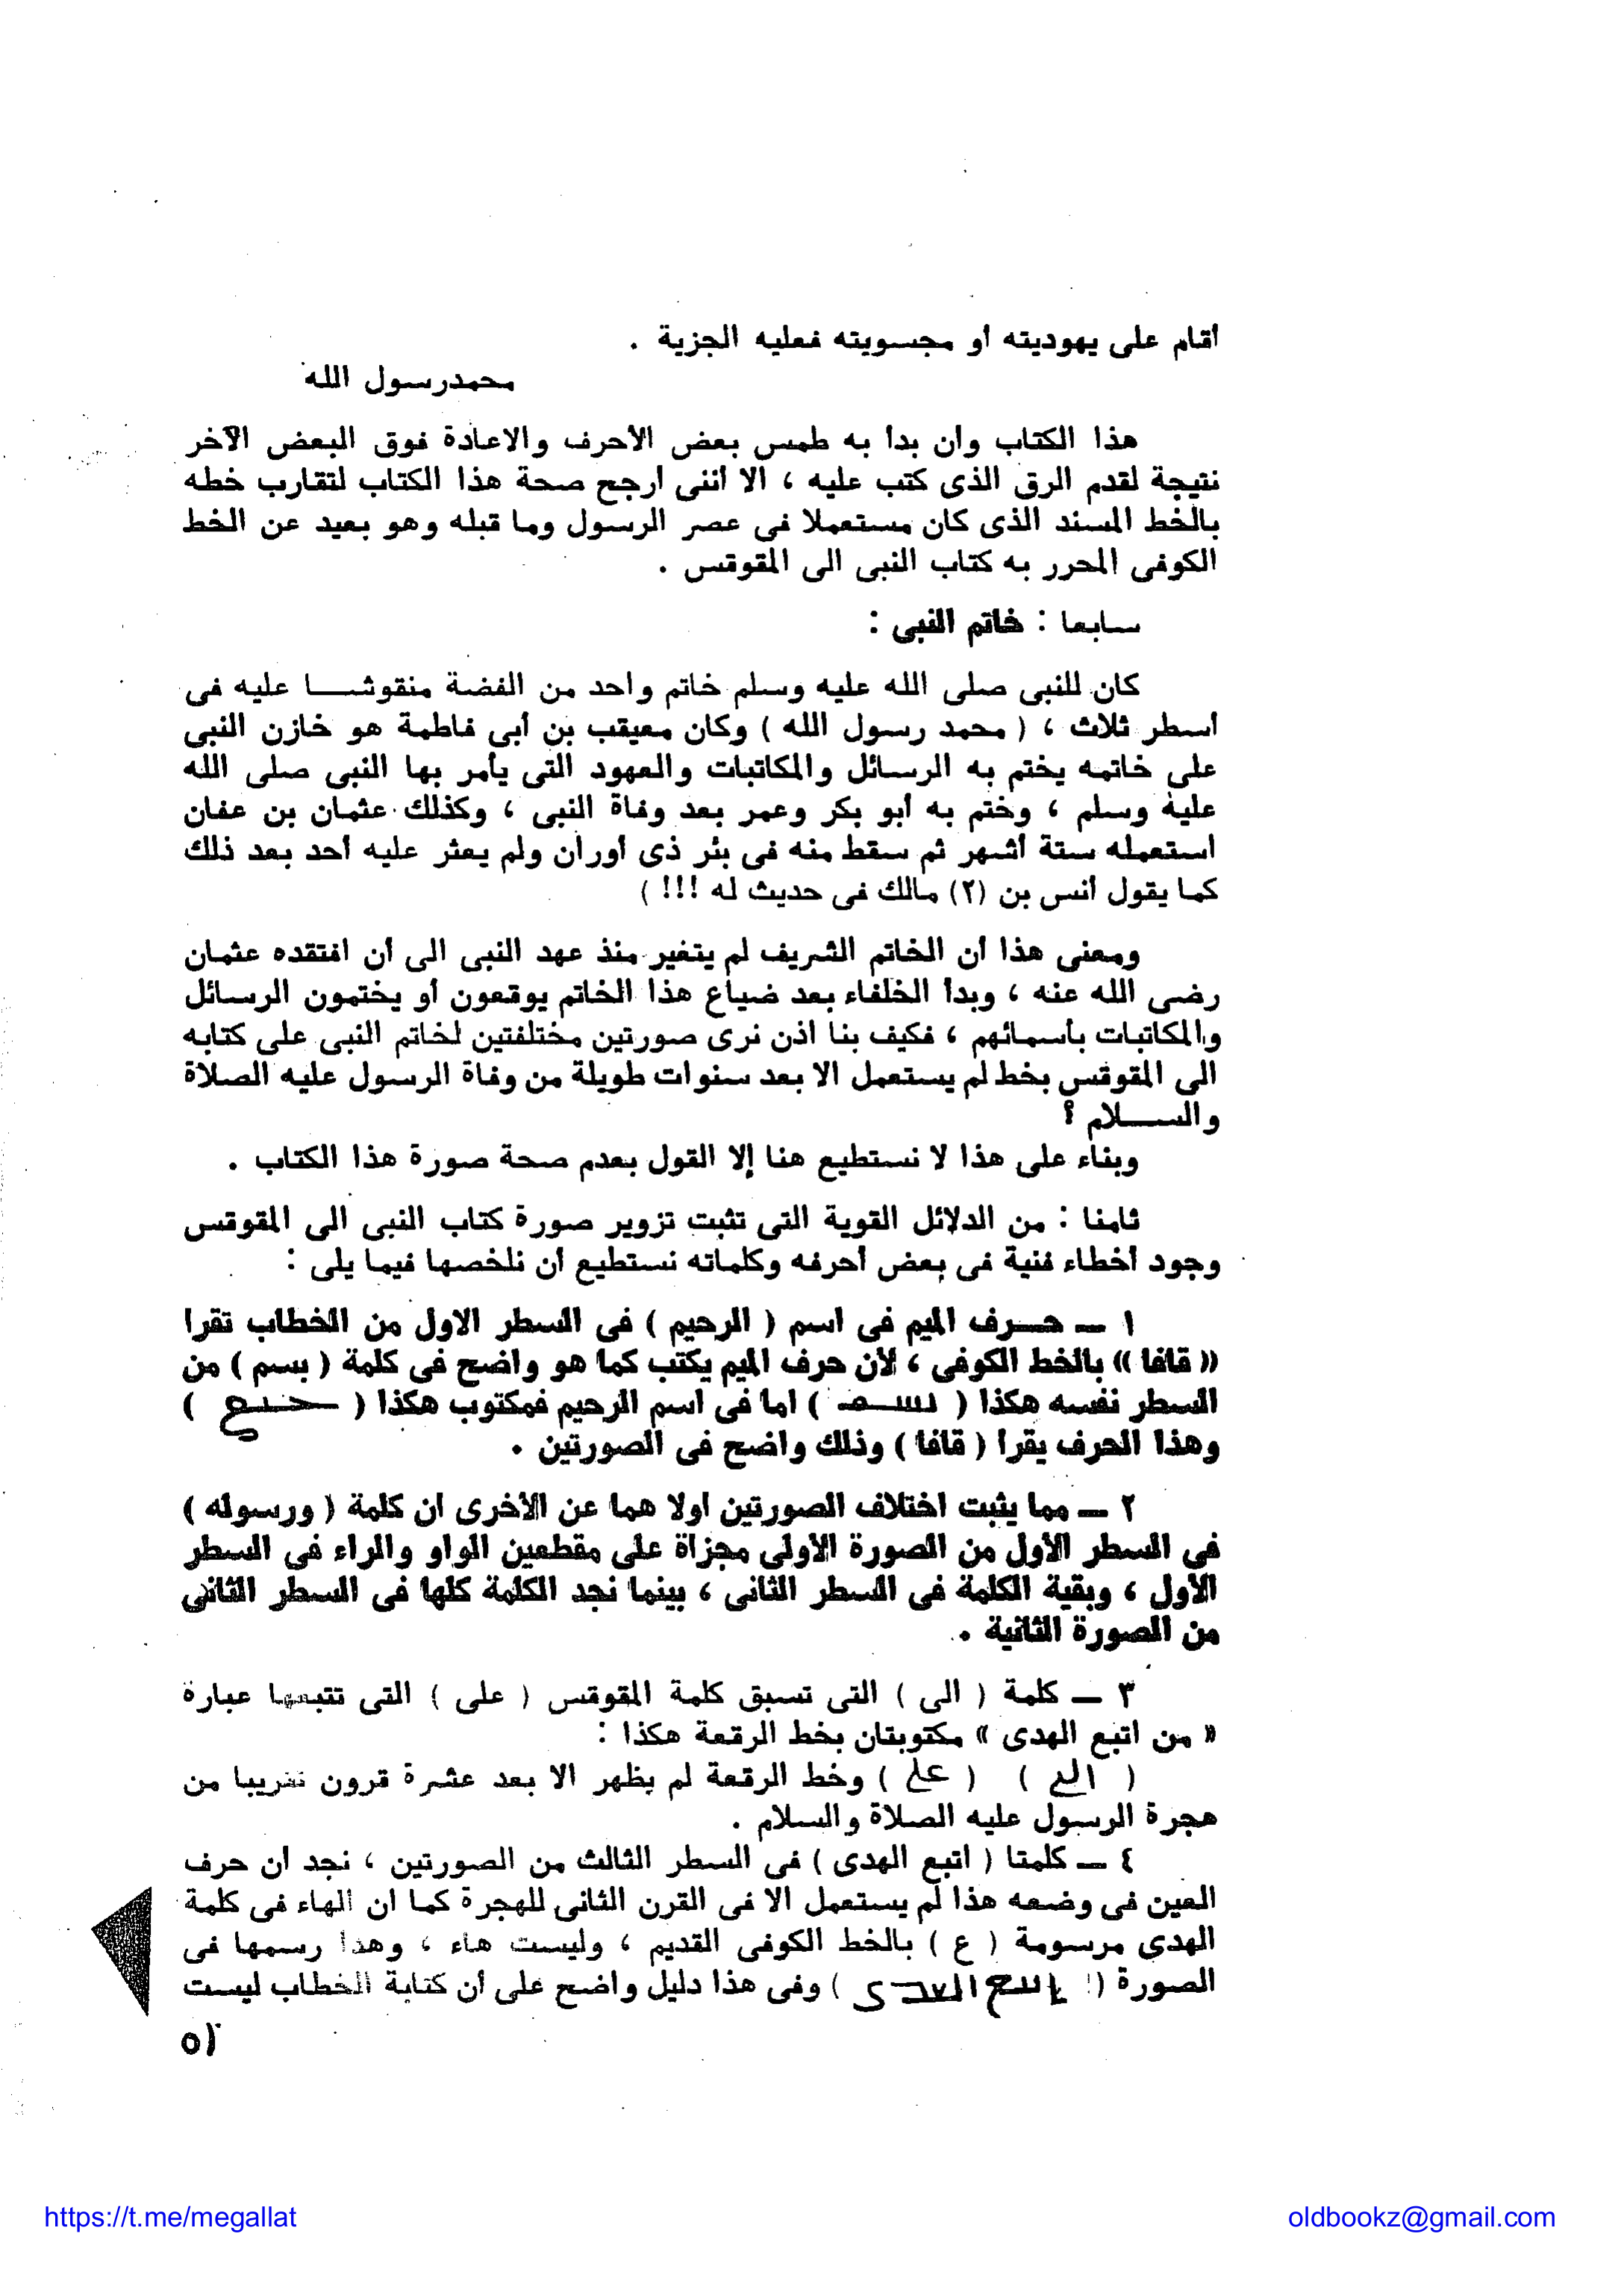 أقام على يهوديته أو مجسويته فعليه الجزية .
محمدرسول الله
هذا الكتاب وأن بدأ به طمس بعض الأحرف والاعادة فوق البعض الآخر
نتيجة لقدم الرق الذى كتب عليه ، الا أننى أرجح صحة هذا الكتاب لتقارب خطه
بالخط المسند الذى كان مستعملا فى عصر الرسول وما قبله وهو بعيد عن الخط
الكوفى المحرر به كتاب النبى الى المقوقس .
سابعا : خاتم النبى :
كان للنبى صلى الله عليه وسلم خاتم واحد من الفضة منقوشا عليه فى
أسطر ثلاث ، ( محمد رسول الله ) وكان معيقب بن أبى فاطمة هو خازن النبى
على خاتمه يختم به الرسائل والمكاتبات والعهود التى يأمر بها النبى صلى الله
عليه وسلم ، وختم به أبو بكر وعمر بعد وفاة النبى ، وكذلك عثمان بن عفان
استعمله ستة أشهر ثم سقط منه فى بئر ذى أوران ولم يعثر عليه أحد بعد ذلك
كما يقول أنس بن (٢) مالك فى حديث له !!! )
ومعنى هذا أن الخاتم الشريف لم يتغير منذ عهد النبى الى أن افتقده عثمان
رضى الله عنه ، وبدأ الخلفاء بعد ضياع هذا الخاتم يوقعون أو يختمون الرسائل
والمكاتبات بأسمائهم ، فكيف بنا اذن نرى صورتين مختلفتين لخاتم النبى على كتابه
الى المقوقس بخط لم يستعمل الا بعد سنوات طويلة من وفاة الرسول عليه الصلاة
والسلام ؟
وبناء على هذا لا نستطيع هنا إلا القول بعدم صحة صورة هذا الكتاب .
ثامنا : من الدلائل القوية التى تثبت تزوير صورة كتاب النبى الى المقوقس
وجود أخطاء فنية فى بعض أحرفه وكلماته نستطيع أن نلخصها فيما يلى :
١ — حرف الميم فى اسم ( الرحيم ) فى السطر الاول من الخطاب تقرا
« قافا » بالخط الكوفى ، لأن حرف الميم يكتب كما هو واضح فى كلمة ( بسم ) من
السطر نفسه هكذا ( ) اما فى اسم الرحيم فمكتوب هكذا ( )
وهذا الحرف يقرا ( قافا ) وذلك واضح فى الصورتين .
٢ — مما يثبت اختلاف الصورتين اولا هما عن الأخرى ان كلمة ( ورسوله )
فى السطر الأول من الصورة الأولى مجزاة على مقطعين الواو والراء فى السطر
الأول ، وبقية الكلمة فى السطر الثانى ، بينما نجد الكلمة كلها فى السطر الثانى
من الصورة الثانية .
٣ — كلمة ( الى ) التى تسبق كلمة المقوقس ( على ) التى تتبعها عبارة
« من اتبع الهدى » مكتوبتان بخط الرقعة هكذا :
( الى ) ( على ) وخط الرقعة لم يظهر الا بعد عشرة قرون تقريبا من
هجرة الرسول عليه الصلاة والسلام .
٤ — كلمتا ( اتبع الهدى ) فى السطر الثالث من الصورتين ، نجد أن حرف
العين فى وضعه هذا لم يستعمل الا فى القرن الثانى للهجرة كما أن الهاء فى كلمة
الهدى مرسومة ( ع ) بالخط الكوفى القديم ، وليست هاء ، وهذا رسمها فى
الصورة ( ) وفى هذا دليل واضح على أن كتابة الخطاب ليست
٥١
https://t.me/megallat
oldbookz@gmail.com